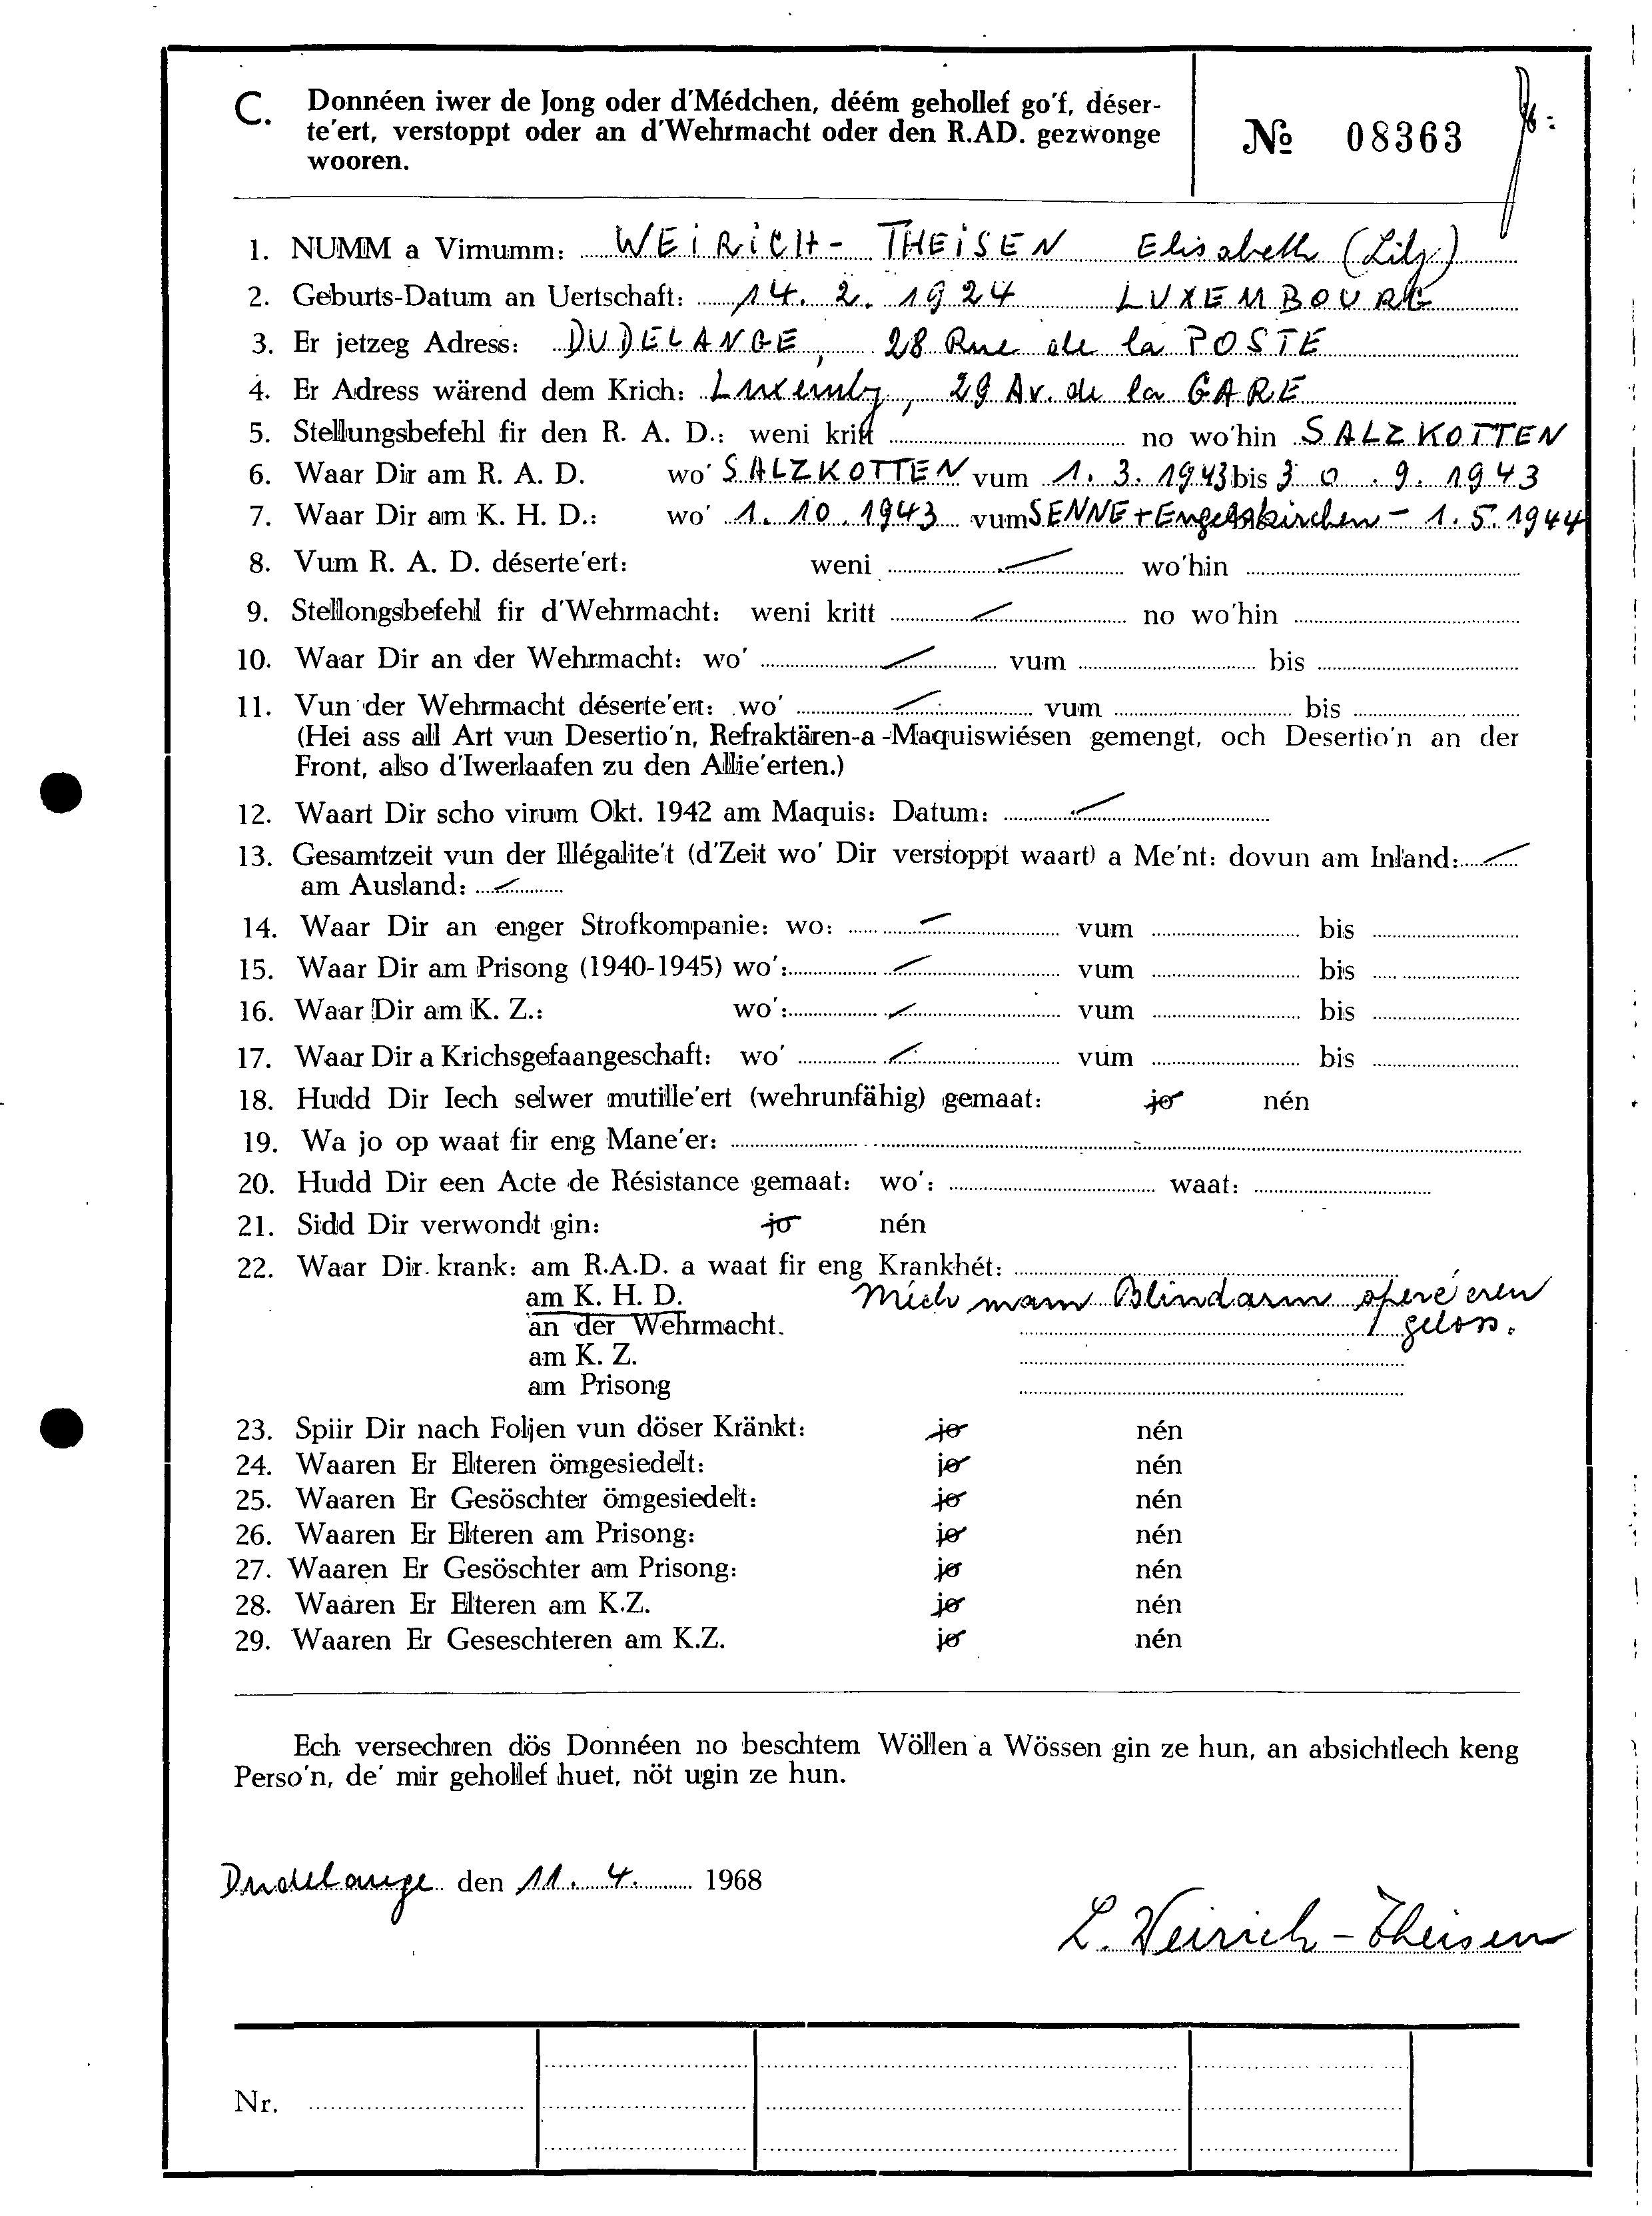 C. Donnéen iwer de Jong oder d'Médchen, déém gehollef go'f, déser-
te'ert, verstoppt oder an d'Wehrmacht oder den R.AD. gezwonge
wooren.
№ 08363
1. NUMM a Virnumm: WEIRICH - THEISEN Elisabeth (Lily)
2. Geburts-Datum an Uertschaft: 14. 2. 1924 LUXEMBOURG
3. Er jetzeg Adress: DUDELANGE, 28 Rue de la POSTE
4. Er Adress wärend dem Krich: Luxembg, 29 Av. de la GARE
5. Stellungsbefehl fir den R. A. D.: weni kritt no wo'hin SALZKOTTEN
6. Waar Dir am R. A. D. wo' SALZKOTTEN vum 1. 3. 1943 bis 30. 9. 1943
7. Waar Dir am K. H. D.: wo' 1. 10. 1943 vum SENNE + Engelskirchen - 1. 5. 1944
8. Vum R. A. D. déserte'ert: weni wo'hin
9. Stellongsbefehl fir d'Wehrmacht: weni kritt no wo'hin
10. Waar Dir an der Wehrmacht: wo' vum bis
11. Vun der Wehrmacht déserte'ert: wo' vum bis
(Hei ass all Art vun Desertio'n, Refraktären-a-Maquiswiésen gemengt, och Desertio'n an der
Front, also d'Iwerlaafen zu den Allie'erten.)
12. Waart Dir scho virum Okt. 1942 am Maquis: Datum:
13. Gesamtzeit vun der Illégalite't (d'Zeit wo' Dir verstoppt waart) a Me'nt: dovun am Inland:
am Ausland:
14. Waar Dir an enger Strofkompanie: wo: vum bis
15. Waar Dir am Prisong (1940-1945) wo': vum bis
16. Waar Dir am K. Z.: wo': vum bis
17. Waar Dir a Krichsgefaangeschaft: wo' vum bis
18. Hudd Dir Iech selwer mutille'ert (wehrunfähig) gemaat: jo nén
19. Wa jo op waat fir eng Mane'er:
20. Hudd Dir een Acte de Résistance gemaat: wo': waat:
21. Sidd Dir verwondt gin: jo nén
22. Waar Dir krank: am R.A.D. a waat fir eng Krankhét:
am K. H. D. Mich mam Blindarm operéieren
an der Wehrmacht. geloss.
am K. Z.
am Prisong
23. Spiir Dir nach Foljen vun döser Kränkt: jo nén
24. Waaren Er Elteren ömgesiedelt: jo nén
25. Waaren Er Gesöschter ömgesiedelt: jo nén
26. Waaren Er Elteren am Prisong: jo nén
27. Waaren Er Gesöschter am Prisong: jo nén
28. Waaren Er Elteren am K.Z. jo nén
29. Waaren Er Geseschteren am K.Z. jo nén
Ech versechren dös Donnéen no beschtem Wöllen a Wössen gin ze hun, an absichtlech keng
Perso'n, de' mir gehollef huet, nöt ugin ze hun.
Dudelange den 11. 4. 1968
L. Weirich - Theisen
Nr.